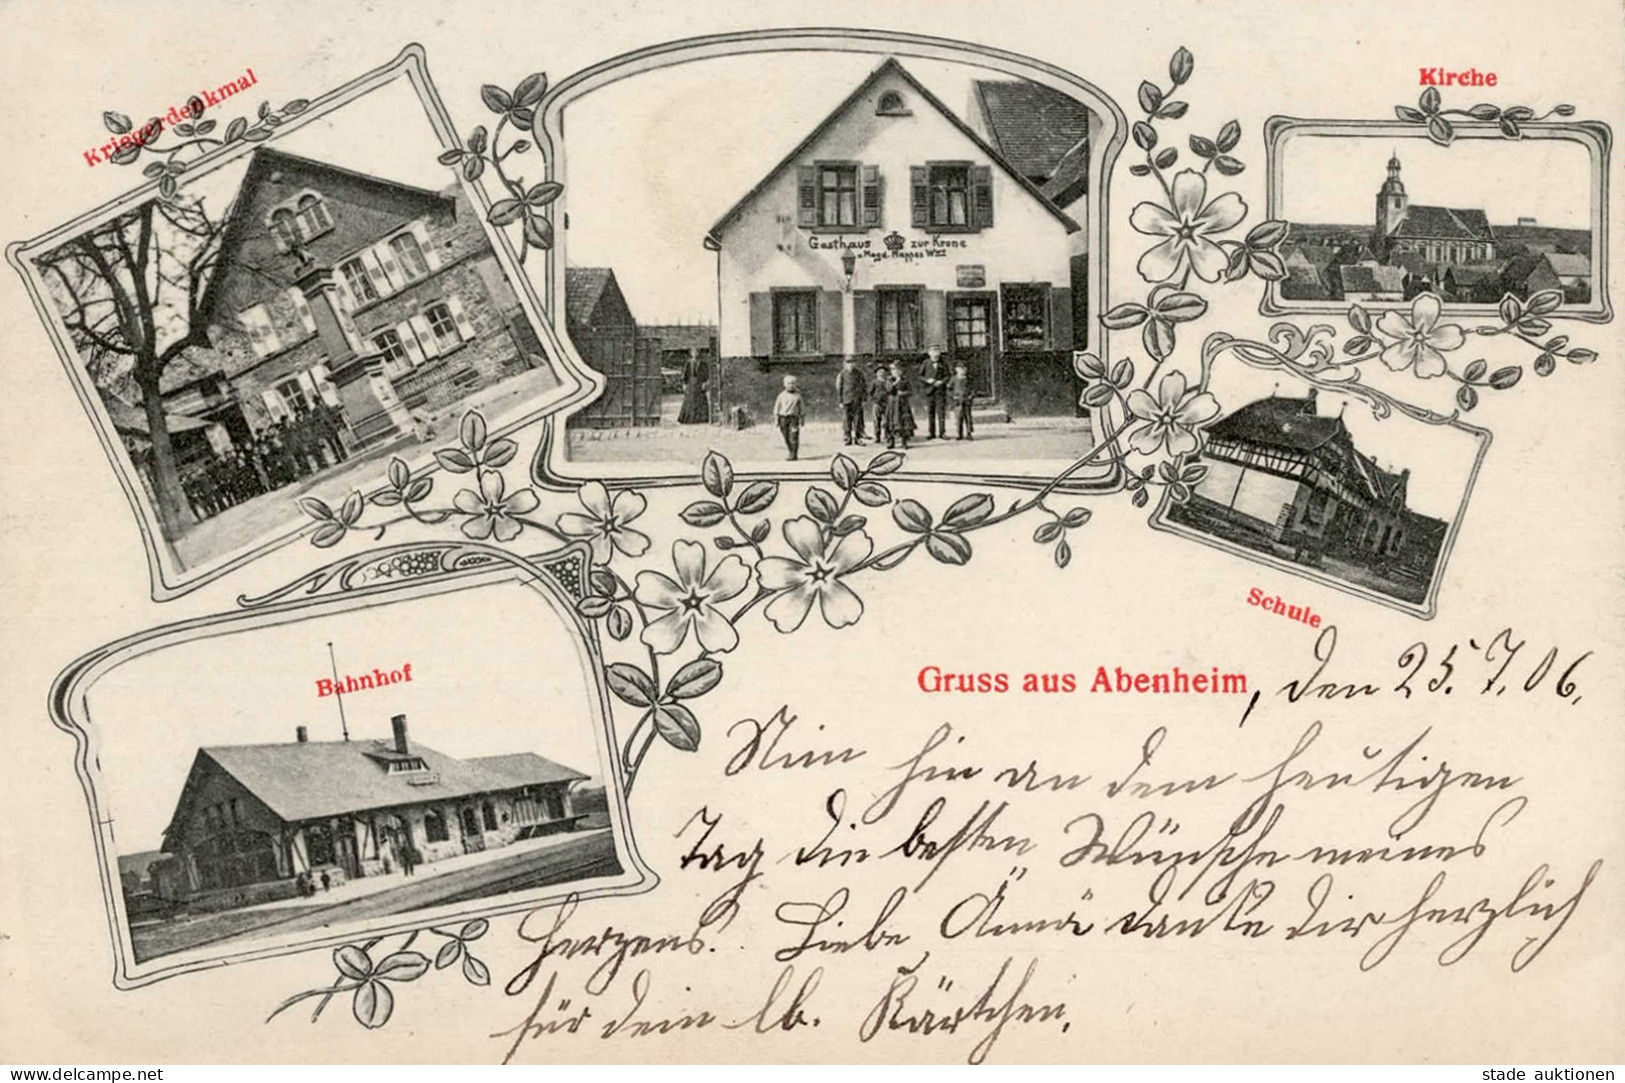 Kriegerdenkmal
Kirche
Gasthaus zur Krone
v. Magd. Wwe
Schule
Bahnhof
Gruss aus Abenheim, den 25.7.06.
Nim hin an dem heutigen
Tag die besten Wünsche meines
Herzens. Liebe Anna danke dir herzlich
für dein lb. Kärtchen.
stade auktionen